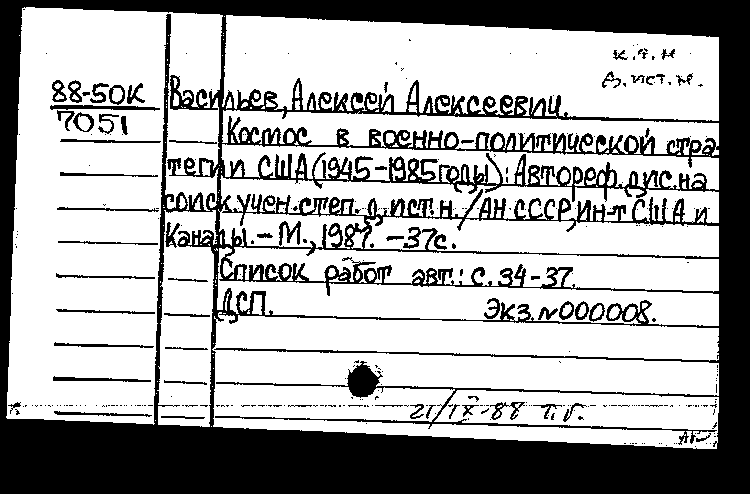 к.т.н
д.ист.н.
88-50К Васильев, Алексей Алексеевич.
7051 Космос в военно-политической стра-
тегии США (1945-1985 годы): Автореф. дис. на
соиск. учен. степ. д. ист. н. / АН СССР, Ин-т США и
Канады. - М., 1987. - 37с.
Список работ авт.: с. 34-37.
ДСП. Экз. №000008.
21/IX-88 т.г.